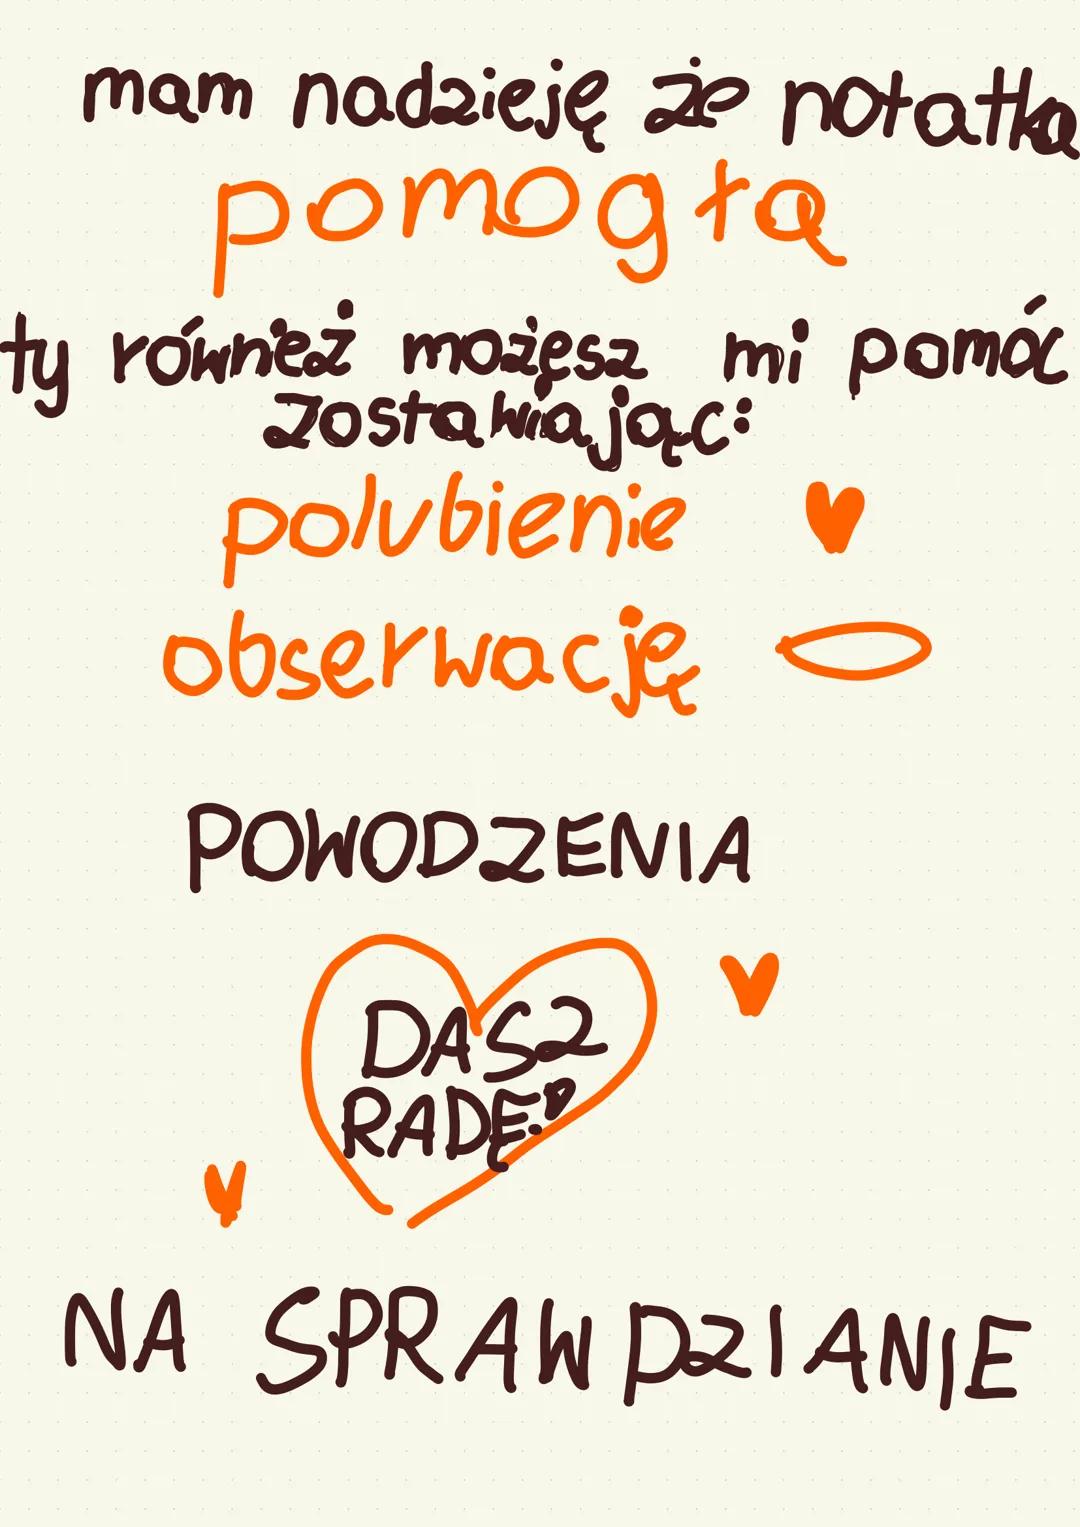 mam nadzieję że notatka
pomogła
ty również możesz mi pomóc
zostawiając:
polubienie
obserwację
POWODZENIA
DASZ
RADĘ!
NA SPRAWDZIANIE